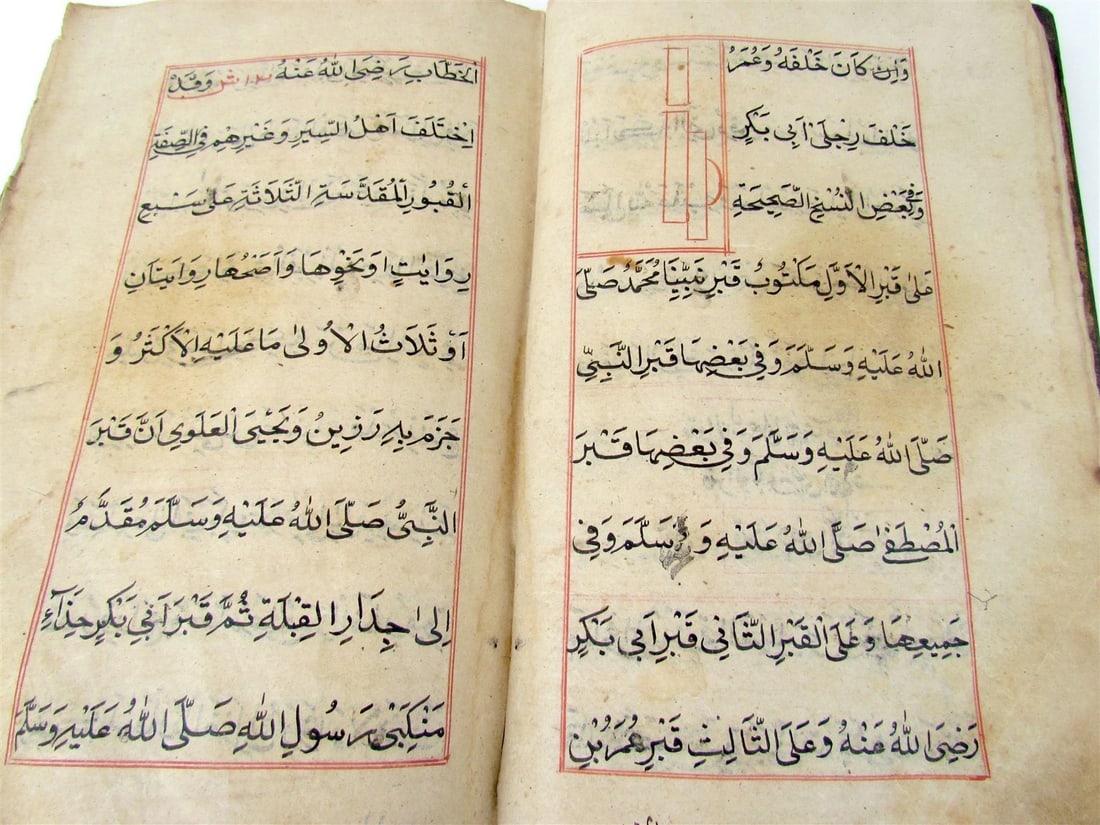 وَاِنْ كَانَ خَلْفَهُ وَعُمَرُ
خَلْفَ رِجْلَىْ اَبِى بَكْرٍ
وَفِى بَعْضِ النُّسَخِ الصَّحِيحَةِ
عَلىٰ قَبْرِ الْاَوَّلِ مَكْتُوبٌ قَبْرِ نَبِيِّنَا مُحَمَّدٌ صَلَّى
اللهُ عَلَيْهِ وَسَلَّمَ وَفِى بَعْضِهَا قَبْرِ النَّبِىِّ
صَلَّى اللهُ عَلَيْهِ وَسَلَّمَ وَفِى بَعْضِهَا قَبْرَ
الْمُصْطَفىٰ صَلَّى اللهُ عَلَيْهِ وَ سَلَّمَ وَفِى
جَمِيعِهَا وَعَلَى الْقَبْرِ الثَّانِى قَبْرِ اَبِى بَكْرٍ
رَضِىَ اللهُ عَنْهُ وَعَلَى الثَّالِثِ قَبْرِ عُمَرُ بْنِ
الخَطَّابِ رَضِىَ اللهُ عَنْهُ وَقَدْ
اِخْتَلَفَ اَهْلُ السِّيَرِ وَغَيْرِهِمْ فِى الصِّفَةِ
اَلْقُبُورِ الْمُقَدَّسَةِ الثَّلَاثَةِ عَلىٰ سَبْعِ
رِوَايٰتٍ اَوْ نَحْوِهَا وَاَصَحُّهَا رِوَايَتَانِ
اَوْ ثَلَاثُ الْاُولىٰ مَا عَلَيْهِ الْاَكْثَرُ وَ
جَزَمَ بِهِ رَزِينُ وَيَحْيَى الْعَلَوِى اَنَّ قَبْرَ
النَّبِىُّ صَلَّى اللهُ عَلَيْهِ وَسَلَّمَ مُقَدَّمُ
اِلىٰ جِدَارِ الْقِبْلَةِ ثُمَّ قَبْرَ اَبِى بَكْرٍ حِذَآءِ
مَنْكِبَىْ رَسُولِ اللهِ صَلَّى اللهُ عَلَيْهِ وَسَلَّمَ